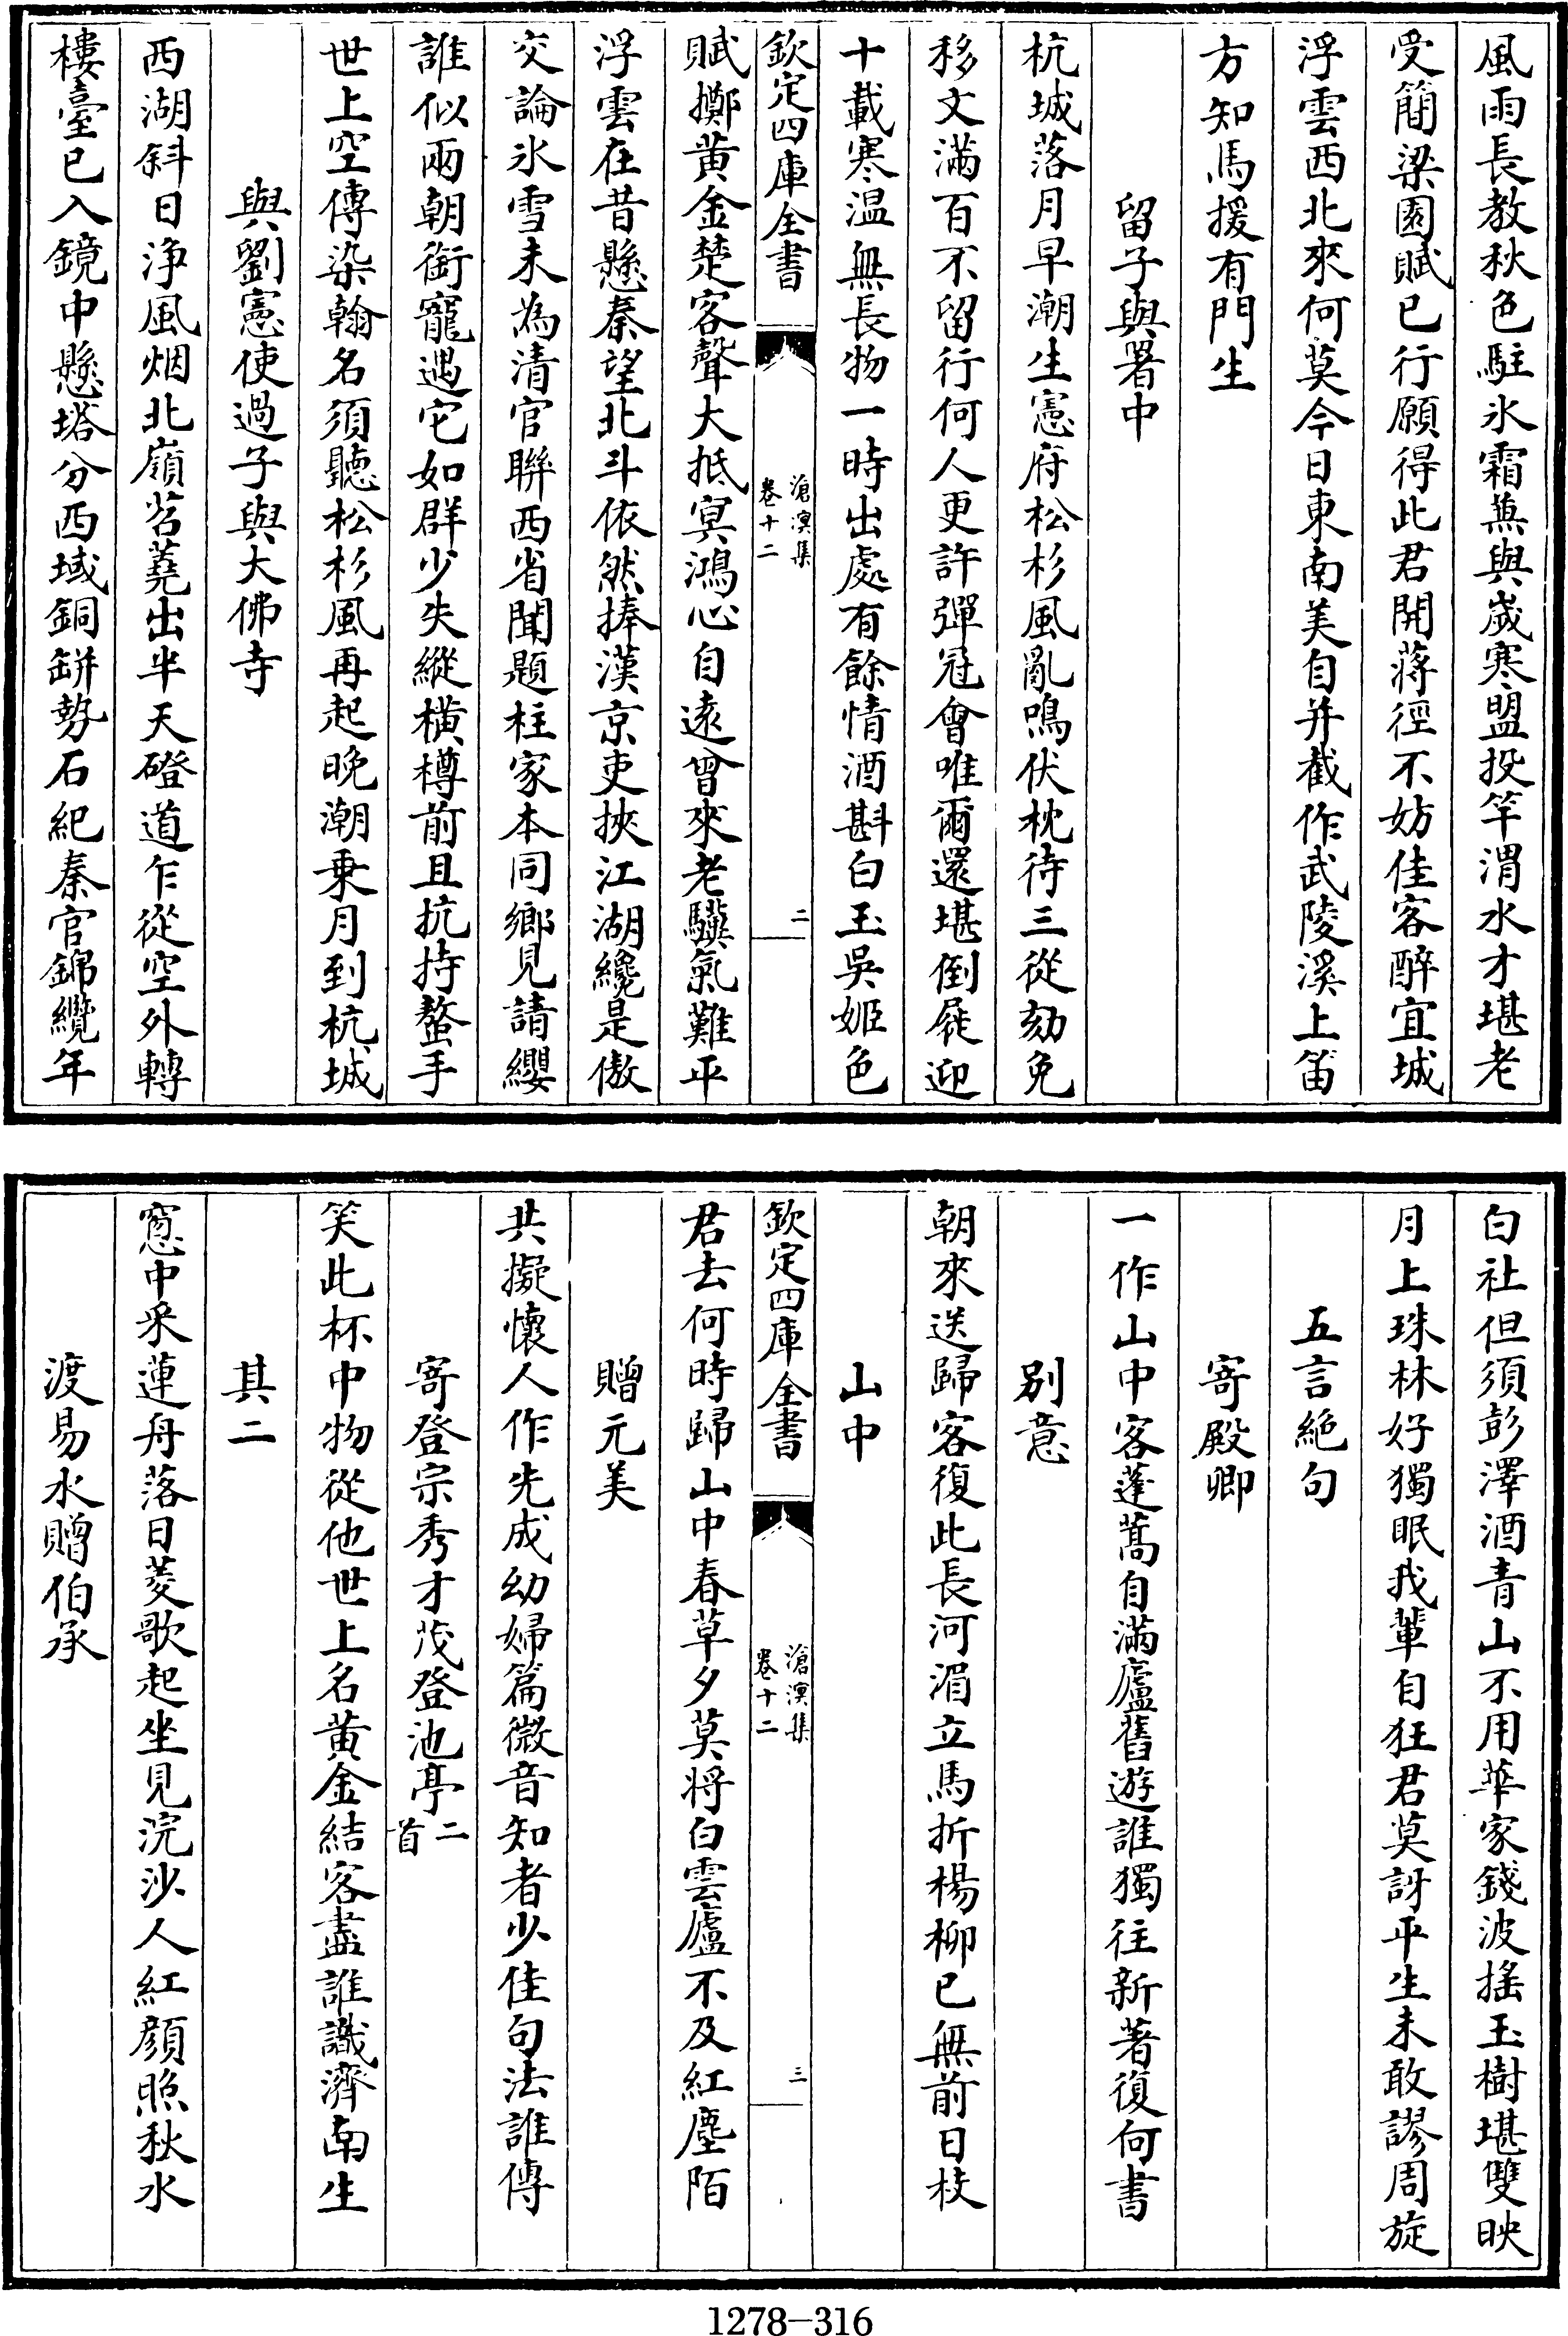 風雨長教秋色駐氷霜蕪與嵗寒盟投竿渭水才堪老
受簡梁園賦已行願得此君開蔣徑不妨佳客醉宜城
浮雲西北來何莫今日東南美自并截作武陵溪上笛
方知馬援有門生
留子與署中
杭城落月早潮生憲府松杉風亂鳴伏枕待三從劾免
移文滿百不留行何人更許彈冠會唯爾還堪倒屣迎
十載寒温無長物一時出處有餘情酒斟白玉吳姬色
欽定四庫全書
滄溟集
卷十二
二
賦擲黄金楚客聲大抵冥鴻心自遠曾來老驥氣難平
浮雲在昔懸秦望北斗依然捧漢京吏挾江湖纔是傲
交論氷雪未為清官聨西省聞題柱家本同鄉見請纓
誰似兩朝銜寵遇它如群少失縱橫樽前且抗持螯手
世上空傳染翰名須聽松杉風再起晚潮乗月到杭城
與劉憲使過子與大佛寺
西湖斜日浄風烟北嶺岧蕘出半天磴道乍從空外轉
樓臺已入鏡中懸塔分西域銅缾勢石紀秦官錦纜年
白社但須彭澤酒青山不用華家錢波搖玉樹堪雙映
月上珠林好獨眠我輩自狂君莫訝平生未敢謬周旋
五言絶句
寄殿卿
一作山中客蓬蒿自滿廬舊遊誰獨往新著復何書
別意
朝來送歸客復此長河湄立馬折楊柳已無前日枝
山中
欽定四庫全書
滄溟集
卷十二
三
君去何時歸山中春草夕莫將白雲廬不及紅塵陌
贈元美
共擬懷人作先成幼婦篇微音知者少佳句法誰傳
寄登宗秀才茂登池亭二首
笑此杯中物從他世上名黄金結客盡誰識濟南生
其二
窻中采蓮舟落日菱歌起坐見浣沙人紅顔照秋水
渡易水贈伯承
1278-316